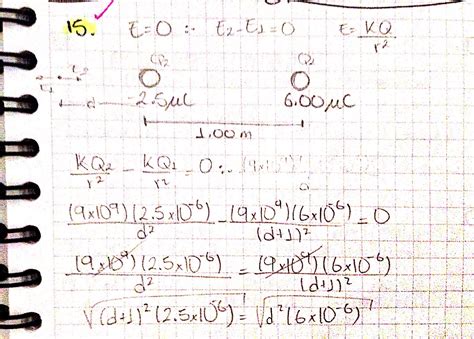 15. E=0 ∴ E₂-E₁=0 E=KQ/r²
Q₂ Q₁
E₁ E₂ d -2.5μC 6.00μC
1.00 m
KQ₂/r² - KQ₁/r² = 0 ∴
(9x10⁹)(2.5x10⁻⁶)/d² - (9x10⁹)(6x10⁻⁶)/(d+1)² = 0
(9x10⁹)(2.5x10⁻⁶)/d² = (9x10⁹)(6x10⁻⁶)/(d+1)²
√(d+1)²(2.5x10⁻⁶) = √d²(6x10⁻⁶)